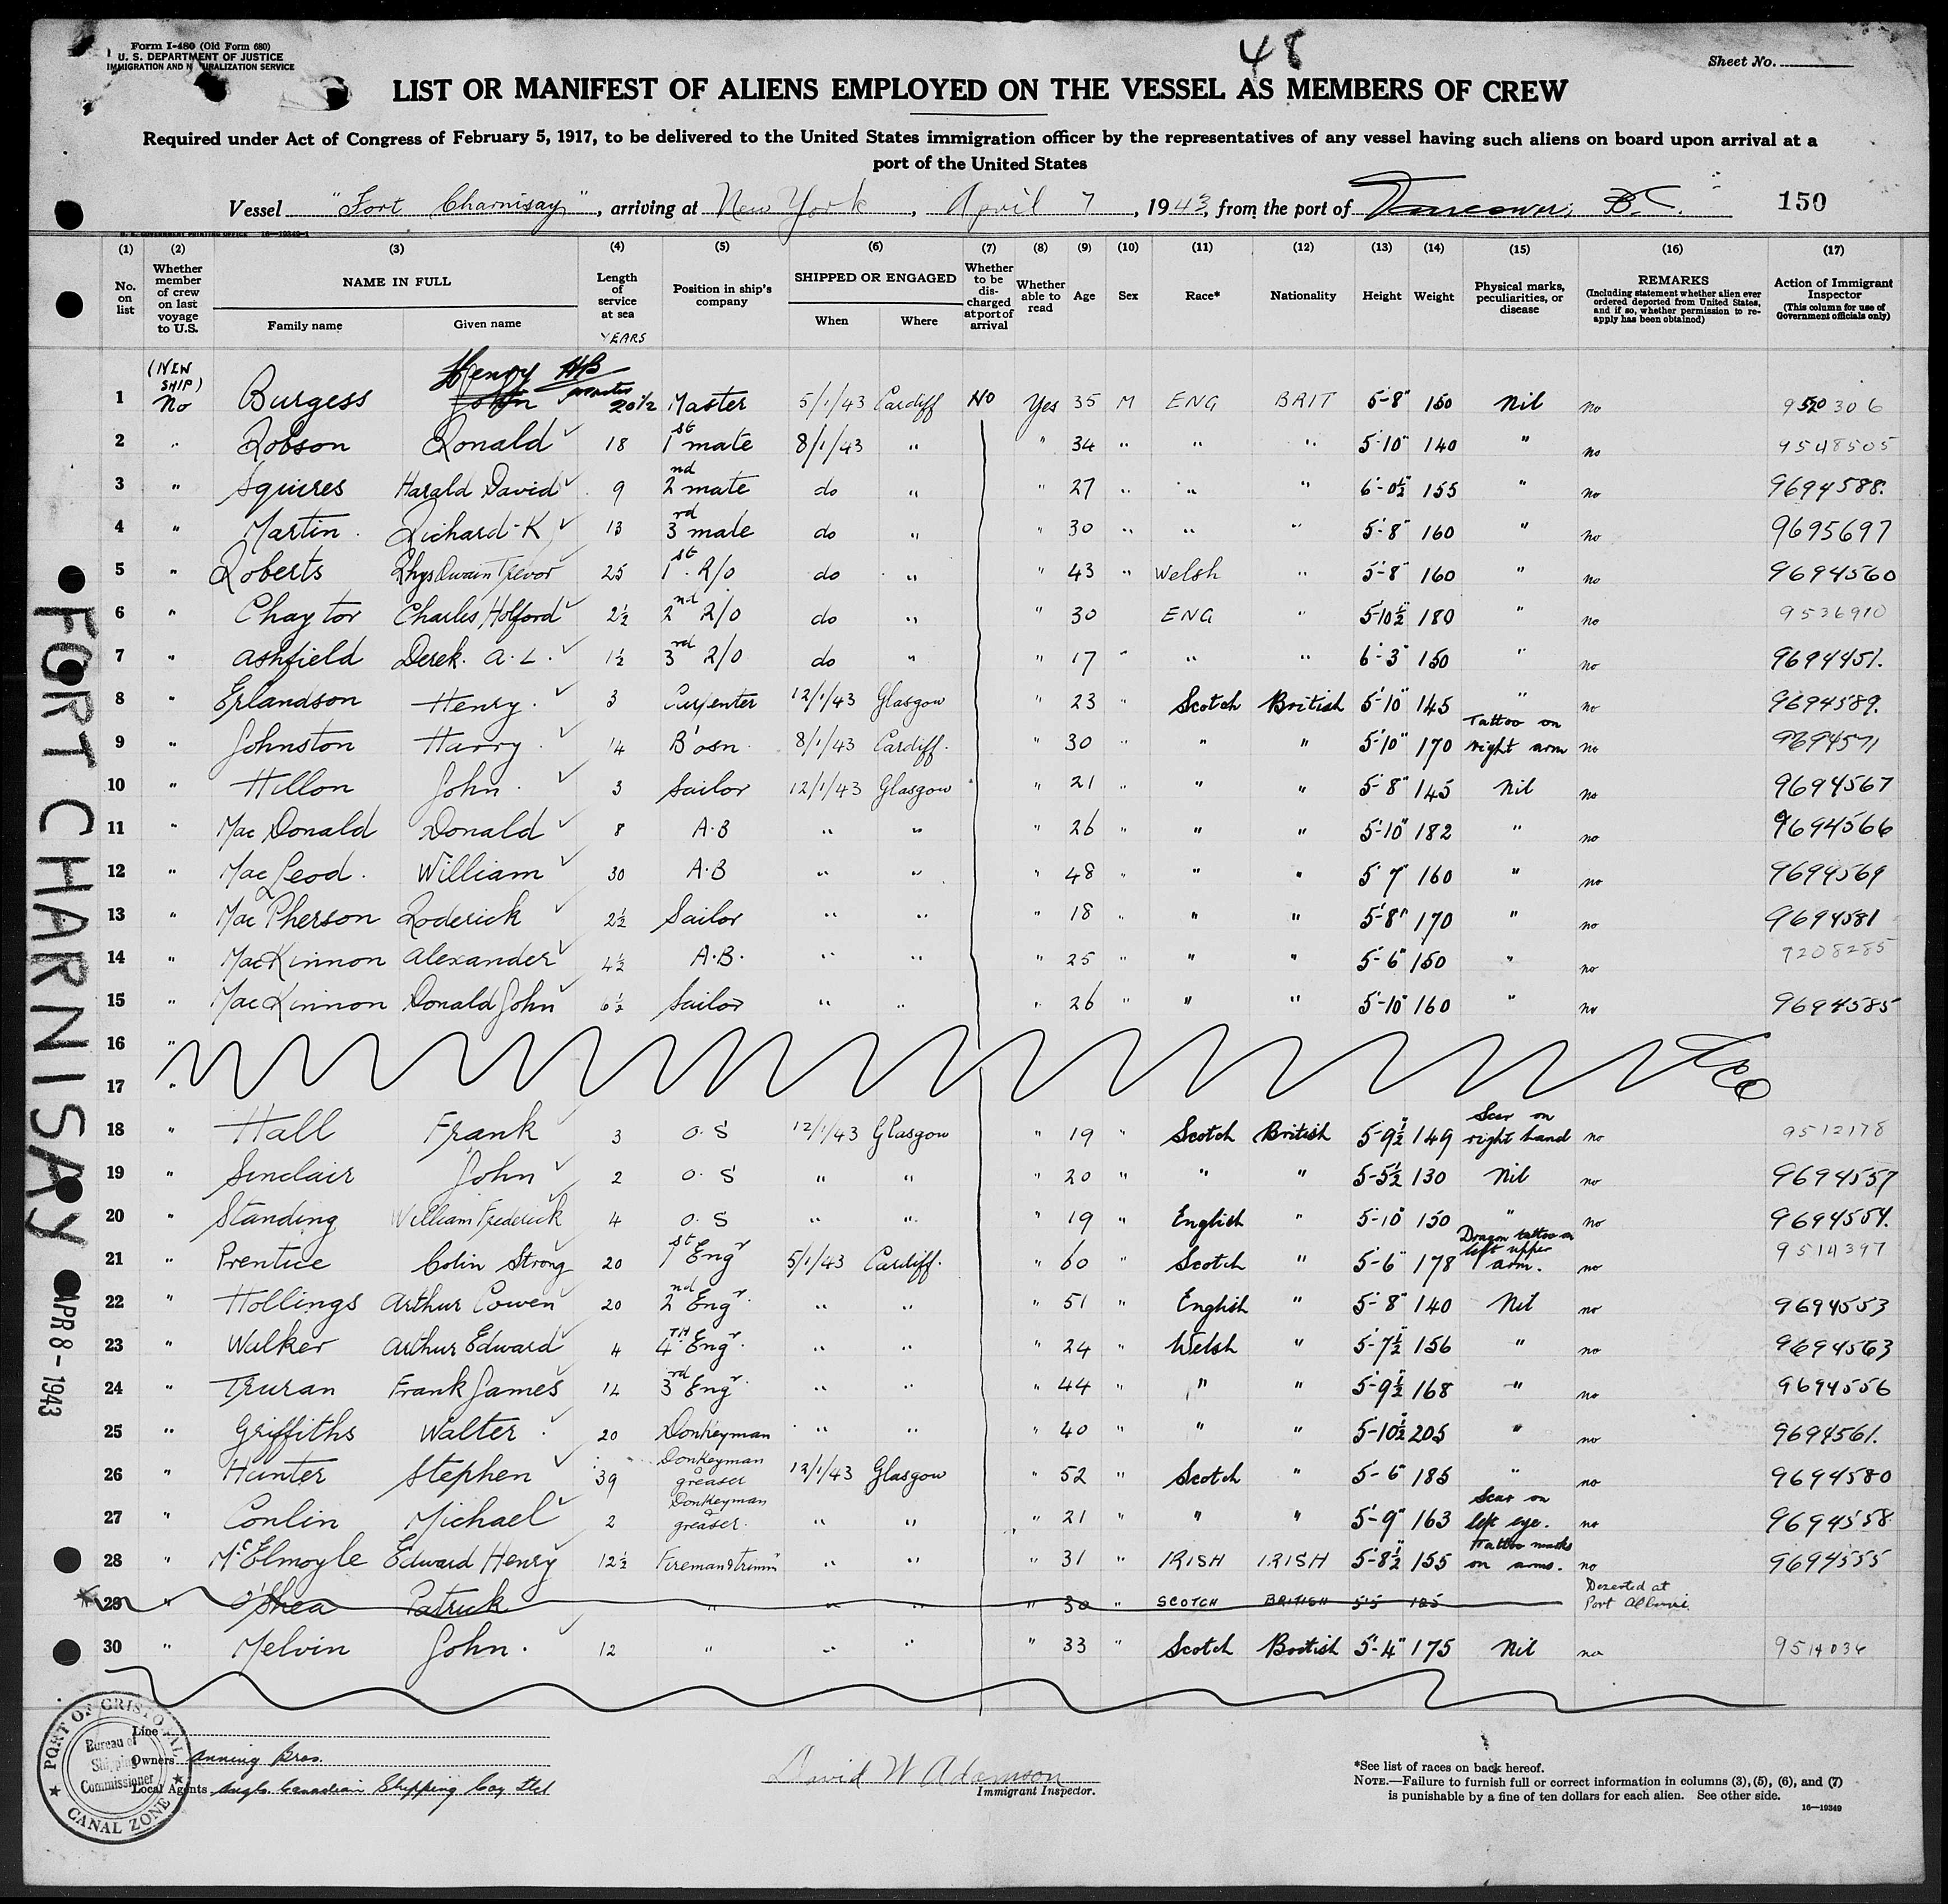 48
Form I-480 (Old Form 680)
U. S. DEPARTMENT OF JUSTICE
IMMIGRATION AND NATURALIZATION SERVICE
Sheet No.
LIST OR MANIFEST OF ALIENS EMPLOYED ON THE VESSEL AS MEMBERS OF CREW
Required under Act of Congress of February 5, 1917, to be delivered to the United States immigration officer by the representatives of any vessel having such aliens on board upon arrival at a
port of the United States
Vessel "Fort Charnisay", arriving at New York, April 7, 1943, from the port of Vancouver, B.C. 150
(1) (2) (3) (4) (5) (6) (7) (8) (9) (10) (11) (12) (13) (14) (15) (16) (17)
No. on list
Whether member of crew on last voyage to U.S.
NAME IN FULL
Family name Given name
Length of service at sea
YEARS
Position in ship's company
SHIPPED OR ENGAGED
When Where
Whether to be discharged at port of arrival
Whether able to read
Age Sex Race* Nationality Height Weight
Physical marks, peculiarities, or disease
REMARKS
(Including statement whether alien ever ordered deported from United States, and if so, whether permission to reapply has been obtained)
Action of Immigrant Inspector
(This column for use of Government officials only)
(NEW SHIP)
1 No Burgess John Henry HB 20 1/2 Master 5/1/43 Cardiff No Yes 35 M ENG BRIT 5-8" 150 Nil no 9520306
2 " Robson Ronald 18 1st mate 8/1/43 " " 34 " " " 5-10" 140 " no 9548505
3 " Squires Harald David 9 2nd mate do " " 27 " " " 6-0½ 155 " no 9694588.
4 " Martin Richard-K 13 3rd mate do " " 30 " " " 5-8" 160 " no 9695697
5 " Roberts Rhys Owain Trevor 25 1st R/O do " " 43 " Welsh " 5-8" 160 " no 9694560
6 " Chaytor Charles Holford 2½ 2nd R/O do " " 30 " ENG " 5-10½ 180 " no 9536910
7 " Ashfield Derek. A. L. 1½ 3rd R/O do " " 17 " " " 6-3" 150 " no 9694451.
8 " Erlandson Henry. 3 Carpenter 12/1/43 Glasgow " 23 " Scotch British 5-10" 145 " no 9694589.
9 " Johnston Harry. 14 B'osn. 8/1/43 Cardiff. " 30 " " " 5-10" 170 Tattoo on right arm no 9694571
10 " Hillon John. 3 Sailor 12/1/43 Glasgow " 21 " " " 5-8" 145 Nil no 9694567
11 " MacDonald Donald 8 A.B " " " 26 " " " 5-10" 182 " no 9694566
12 " MacLeod. William 30 A.B " " " 48 " " " 5 7" 160 " no 9694569
13 " MacPherson Roderick 2½ Sailor " " " 18 " " " 5-8" 170 " no 9694581
14 " MacKinnon Alexander 4½ A.B. " " " 25 " " " 5-6" 150 " no 9208285
15 " MacKinnon Donald John 6½ Sailor " " " 26 " " " 5-10" 160 " no 9694585
16 "
17 "
18 " Hall Frank 3 O. S 12/1/43 Glasgow " 19 " Scotch British 5-9½ 149 Scar on right hand no 9512178
19 " Sinclair John 2 O. S " " " 20 " " " 5-5½ 130 Nil no 9694557
20 " Standing William Frederick 4 O. S " " " 19 " English " 5-10" 150 " no 9694554.
21 " Prentice Colin Strong 20 1st Engr 5/1/43 Cardiff. " 60 " Scotch " 5-6" 178 Dragon tattoo on left upper arm. no 9514397
22 " Hollings Arthur Cowen 20 2nd Engr. " " " 51 " English " 5-8" 140 Nil no 9694553
23 " Walker Arthur Edward 4 4TH Engr. " " " 24 " Welsh " 5-7½ 156 " no 9694563
24 " Truran Frank James 14 3rd Engr. " " " 44 " " " 5-9½ 168 " no 9694556
25 " Griffiths Walter. 20 Donkeyman " " " 40 " " " 5-10½ 205 " no 9694561.
26 " Hunter Stephen 39 Donkeyman greaser 12/1/43 Glasgow " 52 " Scotch " 5-6" 185 " no 9694580
27 " Conlin Michael 2 Donkeyman greaser. " " " 21 " " " 5-9" 163 Scar on left eye. no 9694558
28 " McElmoyle Edward Henry 12½ Fireman & trimmr " " " 31 " IRISH IRISH 5-8½ 155 Tattoo marks on arms. no 9694555
29 " O'Shea Patrick " " " " 30 " SCOTCH BRITISH 5'5 125 Deserted at Port Alberni.
30 " Melvin John. 12 " " " " 33 " Scotch British 5-4" 175 Nil no 9514036
FORT CHARNISAY
APR 8 - 1943
PORT OF CRISTOBAL
Bureau of Shipping Commissioner
CANAL ZONE
Line
Owners Anning Bros.
Local Agents Anglo Canadian Shipping Coy Ltd
David W Adamson
Immigrant Inspector.
*See list of races on back hereof.
NOTE.—Failure to furnish full or correct information in columns (3), (5), (6), and (7)
is punishable by a fine of ten dollars for each alien. See other side.
16—19349